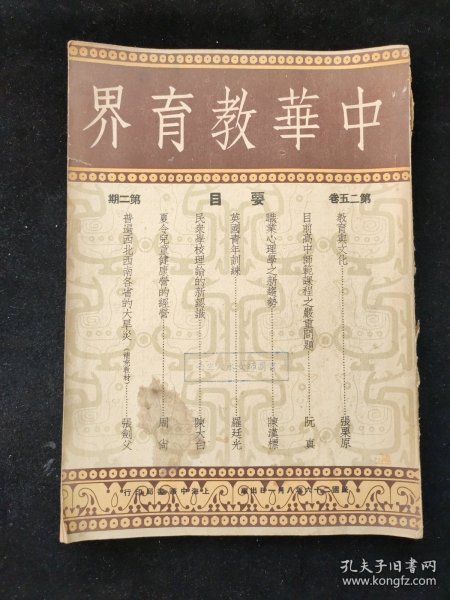 中華教育界
第二五卷
要目
第二期
教育與文化
張栗原
目前高中師範課程之嚴重問題
阮真
職業心理學之新趨勢
陳漢標
英國青年訓練
羅廷光
民衆學校理論的新認識
陳大白
夏令兒童健康營的經營
周尚
普遍西北西南各省的大旱災（補充教材）
張劍父
民國二十六年八月一日出版
上海中華書局印行
孔夫子旧书网
www.kongfz.com